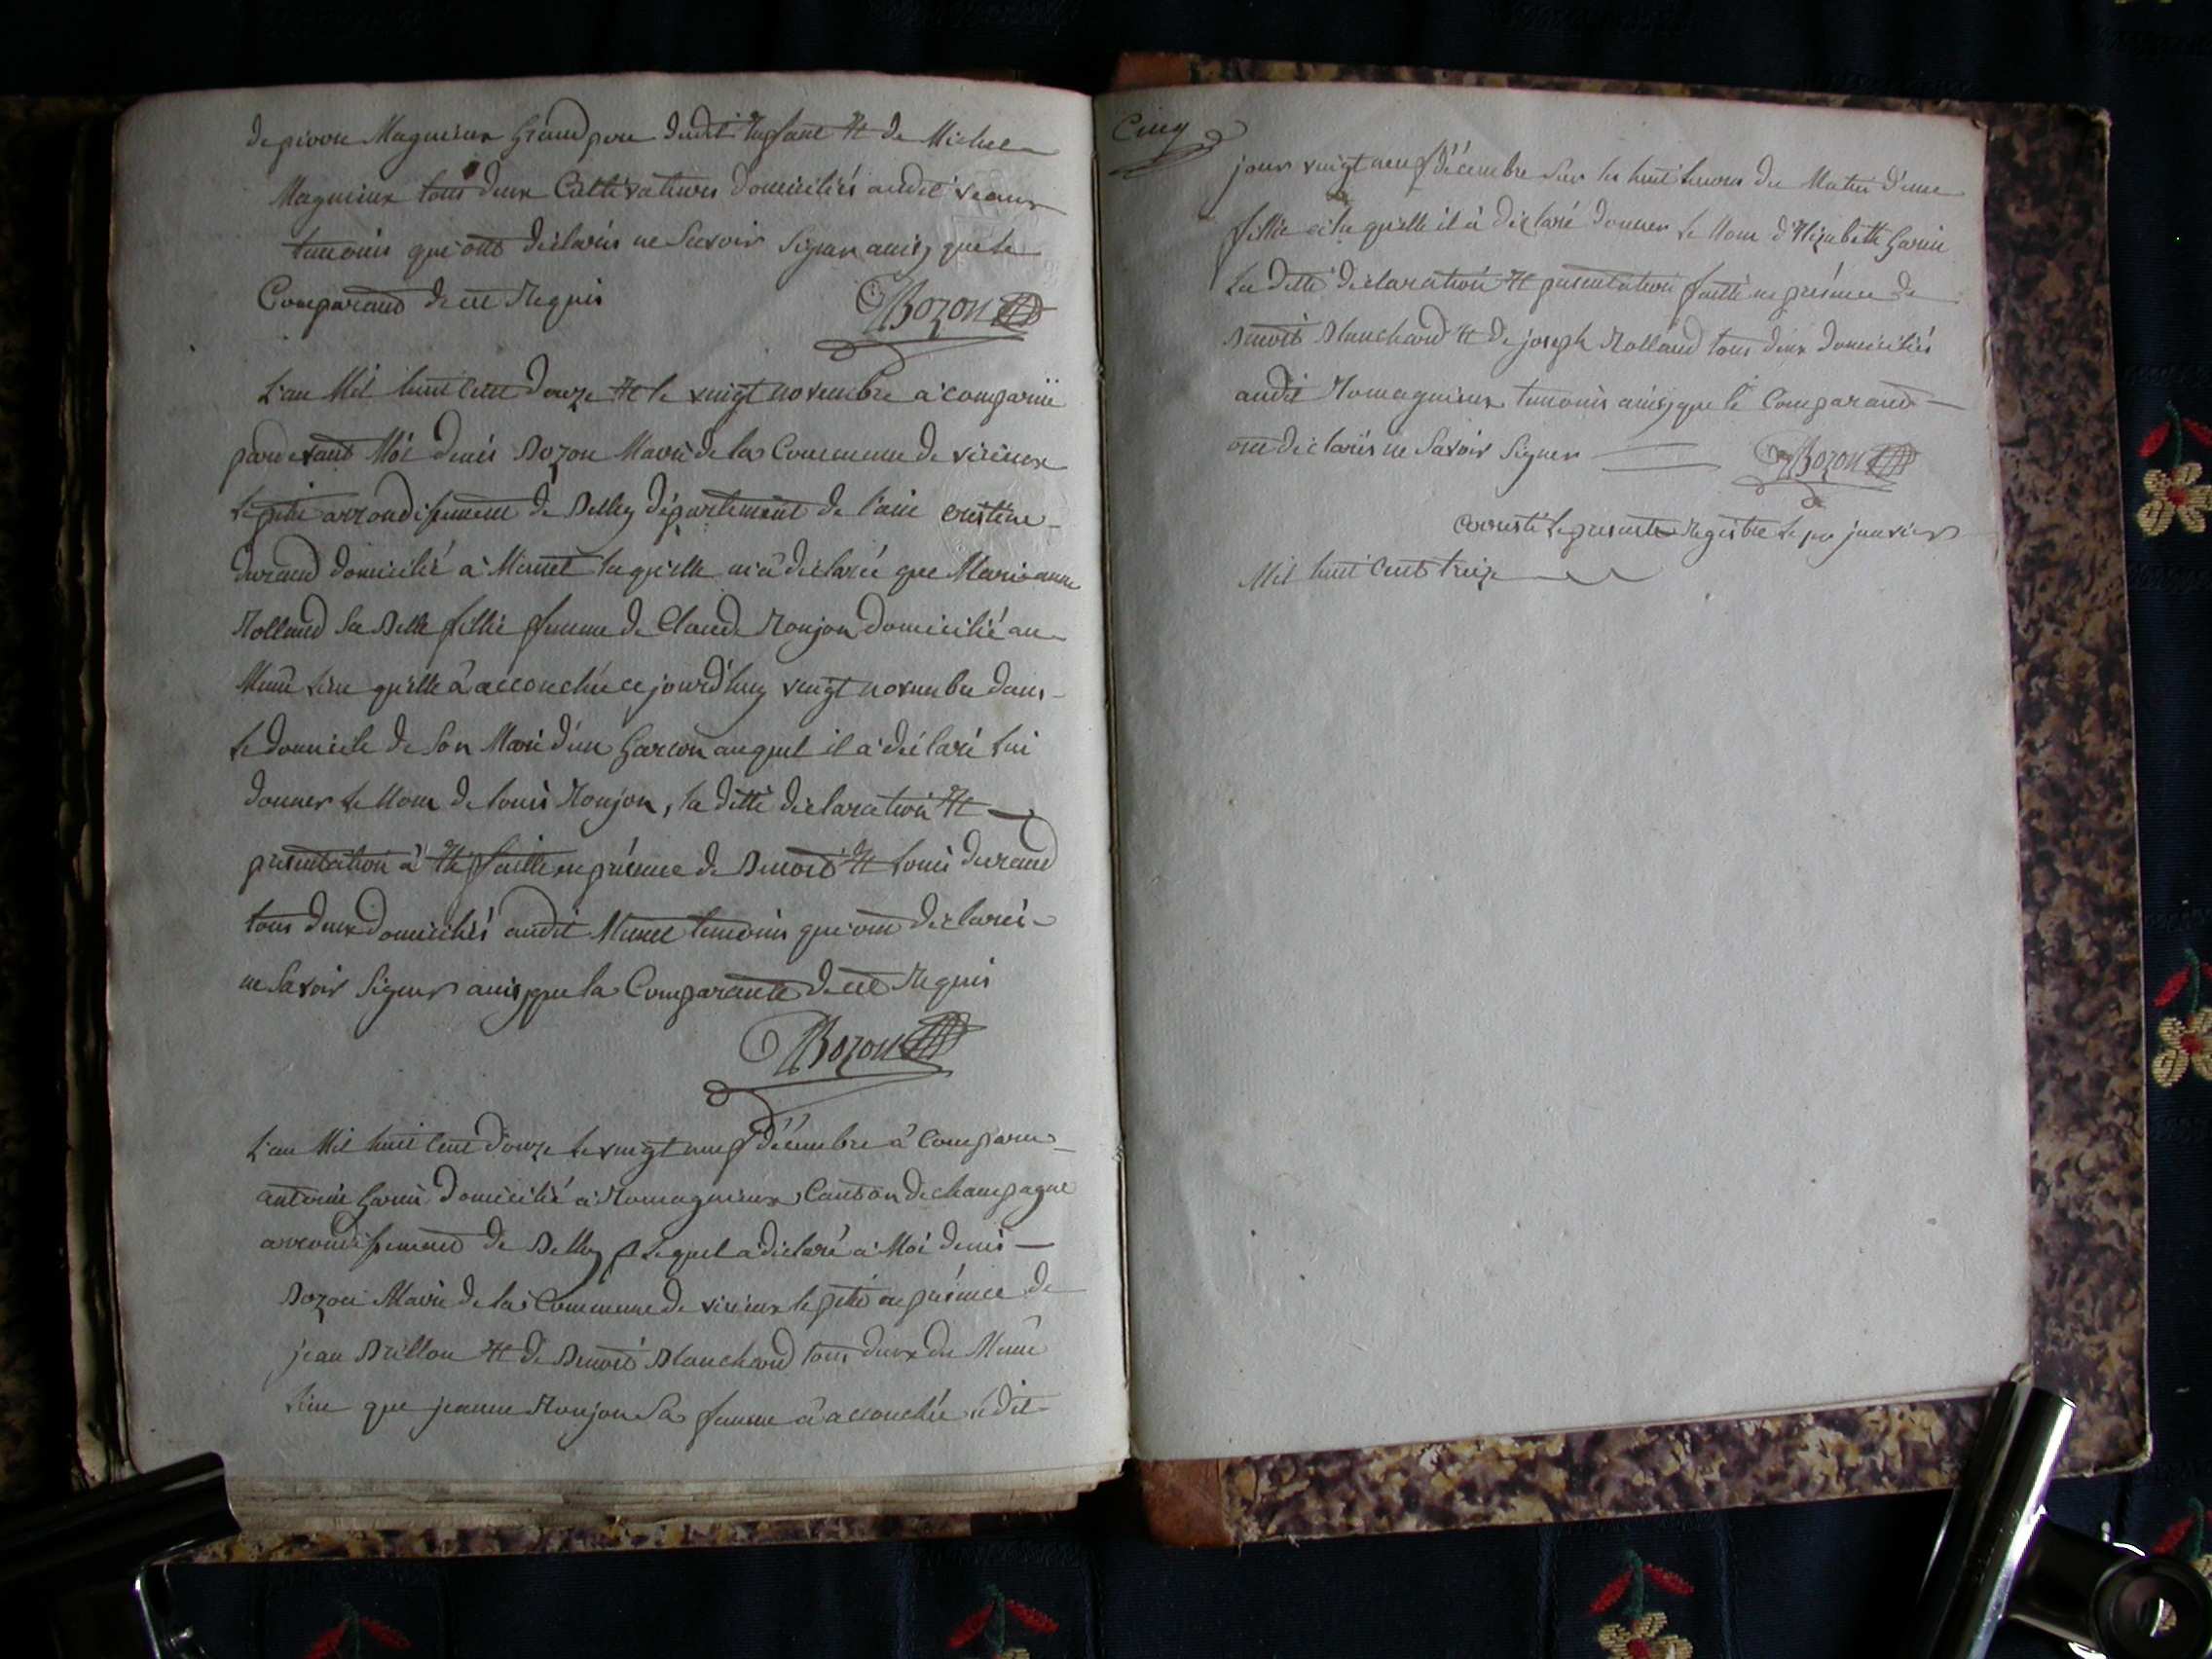 de pierre Magnieux Grand pere dudit Enfant Et de Michel
Magnieux tous deux Cultivateurs domiciliés audit
temoins qui ont déclarés ne Savoir Signer ainsy que le
Comparand de ce Requis
Bozon
L'an Mil huit Cent douze Et le vingt novembre à comparüe
pardevant Moi denis Bozon Maire de la Commune de virieux
le petit arrondissement de Belley département de l'ain cristine
durand domicilié à Munet la qu'elle m'a déclaré que Marianne
Rolland Sa Belle fillie femme de Claude Roujon domicilié au
Même Lieu qu'elle à accouchée ce jourd'huy vingt novembre dans
le domicile de Son Mari d'un Garcon auquel il a déclaré lui
donner le Nom de Louis Roujon, la ditte déclaration Et
présentation à Eté faitte en présence de Benoit Et Louis durand
tous deux domiciliés audit Munet temoins qui ont déclarés
ne Savoir Signer ainsy que la Comparante de ce Requis
Bozon
L'an Mil huit Cent douze le vingt neuf décembre à Comparu
antoine Garin domicilié à Romagnieux Canton de champagne
arrondissement de Belley Lequel a déclaré à Moi denis
Bozon Maire de la Commune de virieux le petit en présence de
jean Brillon Et de Benoit Blanchard tous deux du Même
Lieu que jeanne Roujon Sa femme à accouchée
Cinq
jour vingt neuf décembre Sur les huit heures du Matin d'une
fillie à la qu'elle il à déclaré donner le Nom d'Elizabeth Garin
La ditte déclaration Et présentation faitte en présence de
Benoit Blanchard Et de joseph Rolland tous deux domiciliés
audit Romagnieux temoins ainsy que le Comparand
ont déclarés ne Savoir Signer
Bozon
arresté le present Registre le per janvier
Mil huit Cent treize